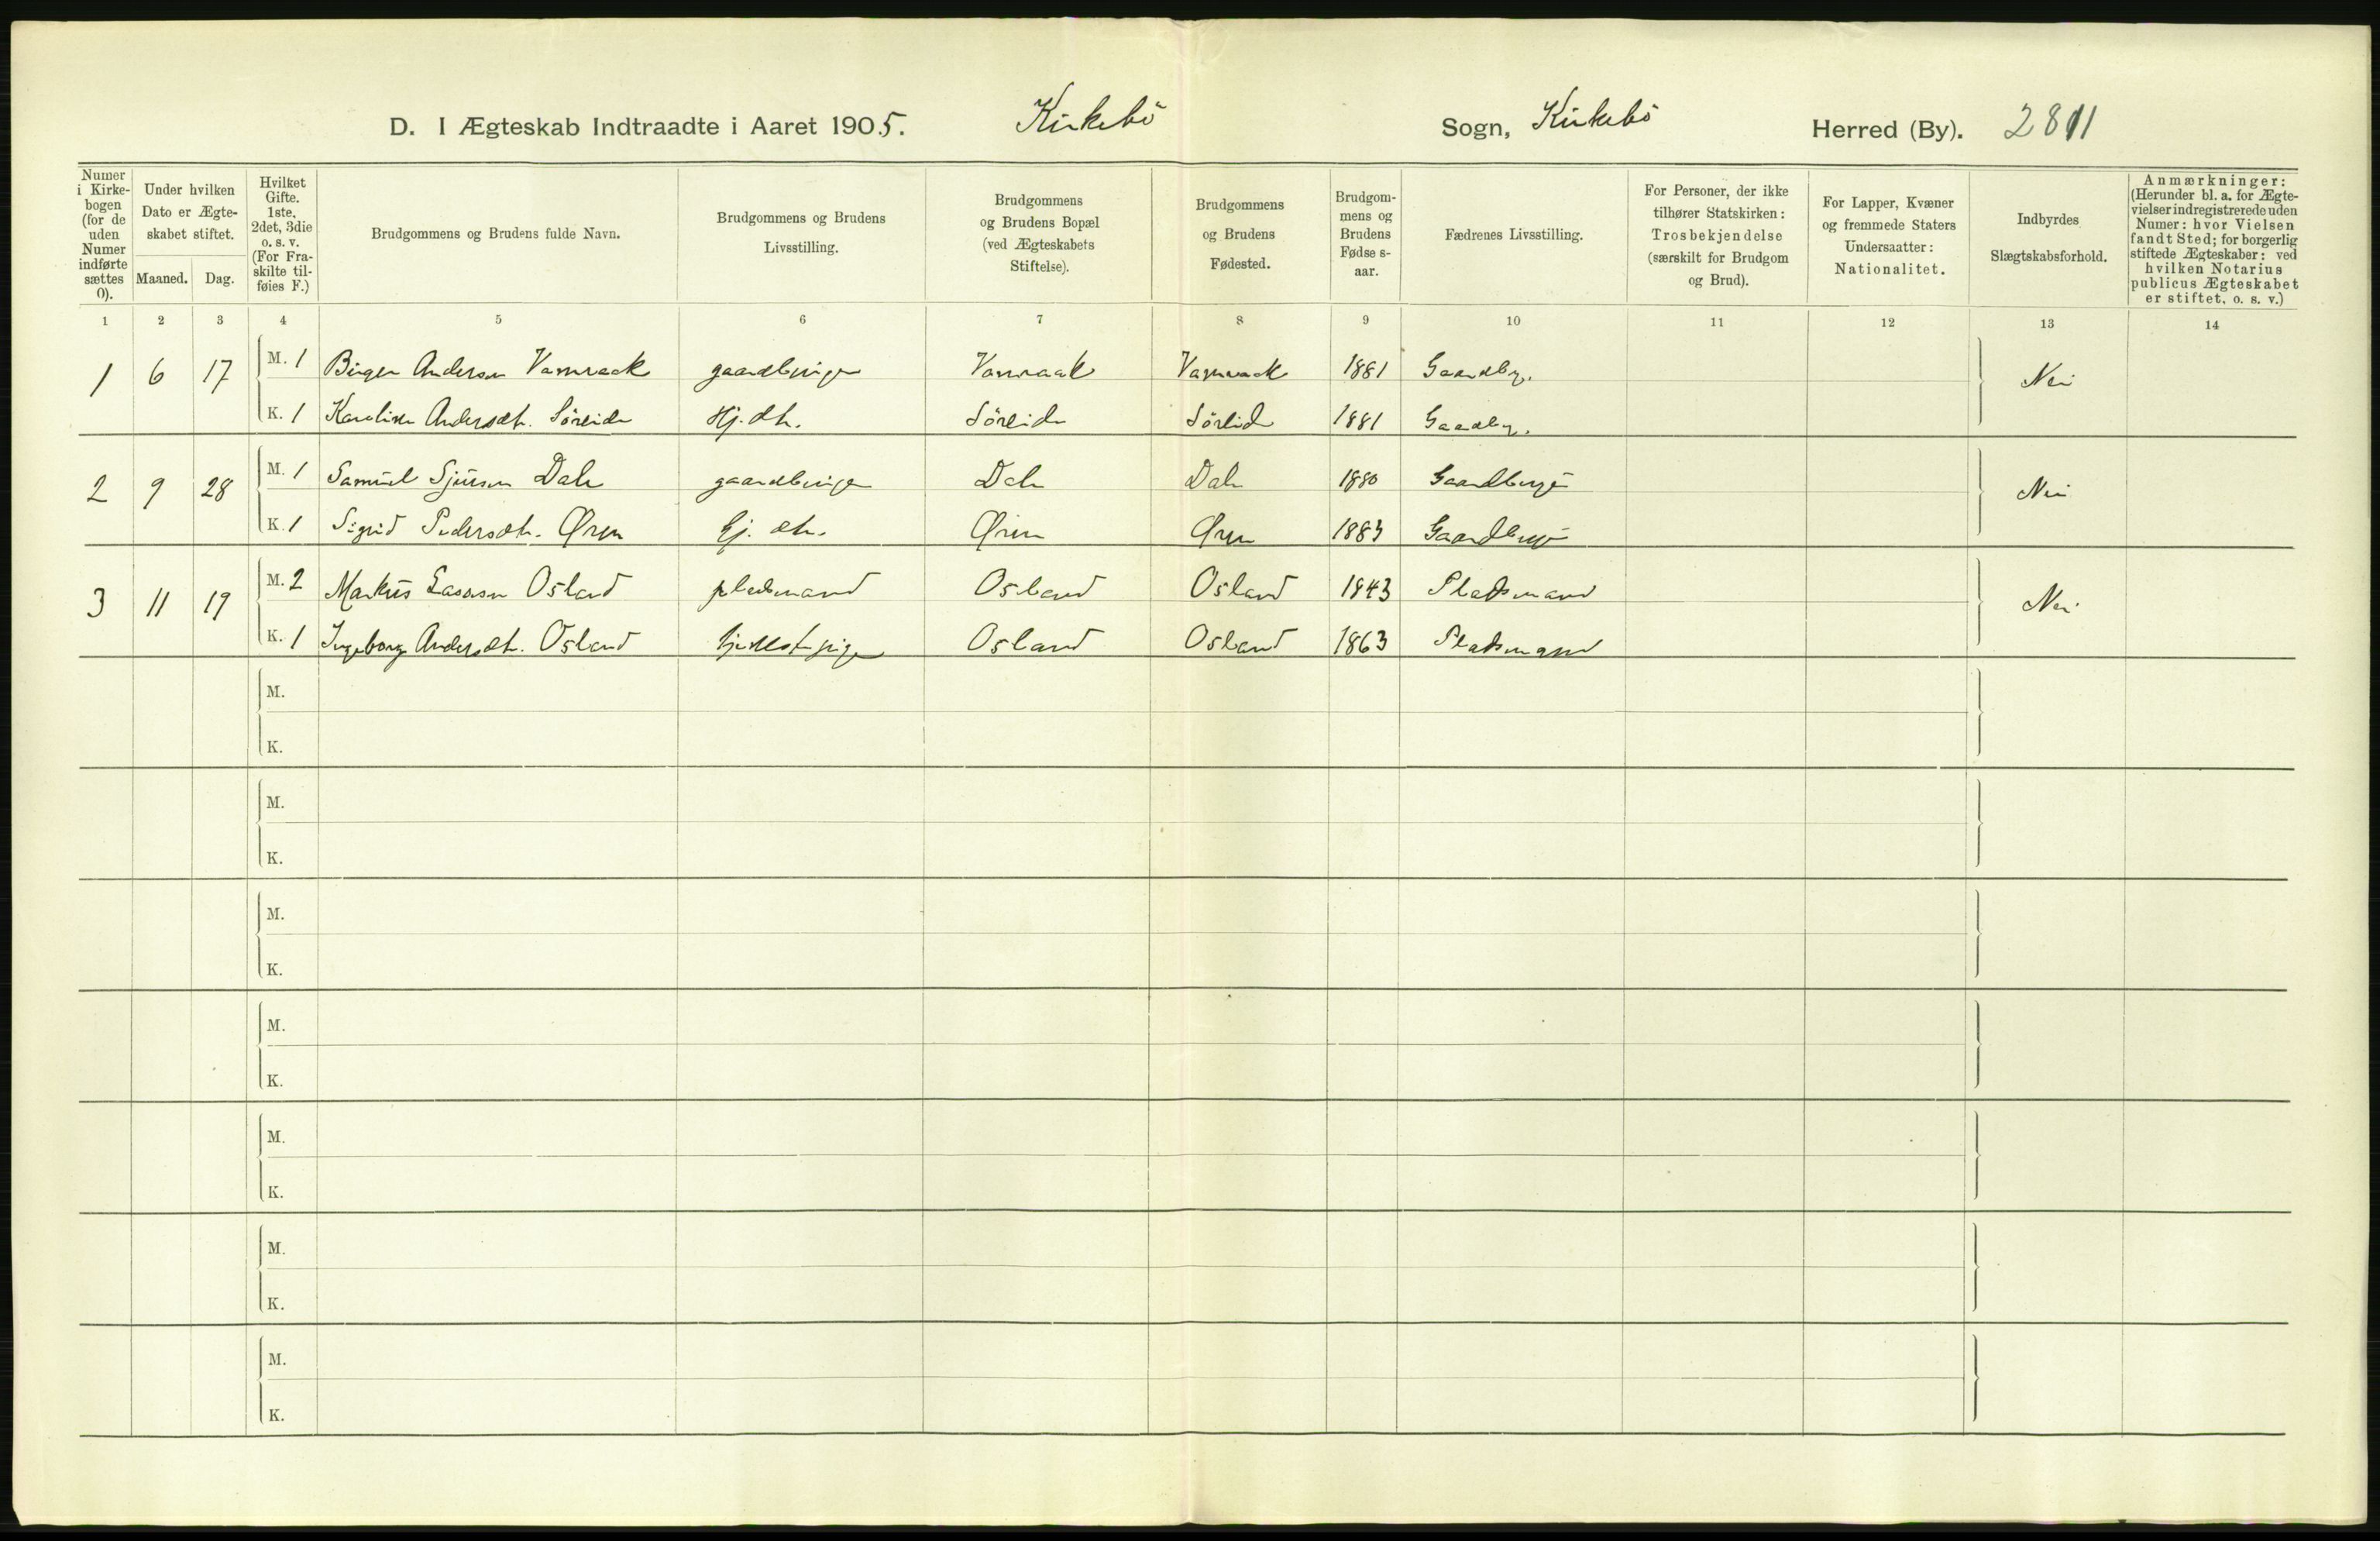 D. I Ægteskab Indtraadte i Aaret 1905. Kirkebö Sogn, Kirkebö Herred (By). 2811
Numer i Kirke-bogen (for de uden Numer indførte sættes 0).
Under hvilken Dato er Ægte-skabet stiftet.
Maaned. Dag.
Hvilket Gifte. 1ste, 2det, 3die o. s. v. (For Fra-skilte til-føies F.)
Brudgommens og Brudens fulde Navn.
Brudgommens og Brudens Livsstilling.
Brudgommens og Brudens Bopæl (ved Ægteskabets Stiftelse).
Brudgommens og Brudens Fødested.
Brudgom-mens og Brudens Fødse s-aar.
Fædrenes Livsstilling.
For Personer, der ikke tilhører Statskirken: Trosbekjendelse (særskilt for Brudgom og Brud).
For Lapper, Kvæner og fremmede Staters Undersaatter: Nationalitet.
Indbyrdes Slægtskabsforhold.
Anmærkninger: (Herunder bl. a. for Ægte-vielser indregistrerede uden Numer: hvor Vielsen fandt Sted; for borgerlig stiftede Ægteskaber: ved hvilken Notarius publicus Ægteskabet er stiftet, o. s. v.)
1 2 3 4 5 6 7 8 9 10 11 12 13 14
1 6 17 M. 1 Birger Andersen Vamraak gaardbruger Vamraak Vamraak 1881 Gaardbr. Nei
K. 1 Karoline Andersdtr. Söreide Hj. dtr. Söreide Söreide 1881 Gaardbr.
2 9 28 M. 1 Samuel Sjursen Dale gaardbruger Dale Dale 1880 Gaardbruger Nei
K. 1 Sigrid Pedersdtr. Øren Hj. dtr. Øren Øren 1883 Gaardbruger
3 11 19 M. 2 Markus Lassesen Osland pladsmand Osland Osland 1843 Pladsmand Nei
K. 1 Ingeborg Andersdtr. Osland tjenestepige Osland Osland 1863 Pladsmand
M.
K.
M.
K.
M.
K.
M.
K.
M.
K.
M.
K.
M.
K.